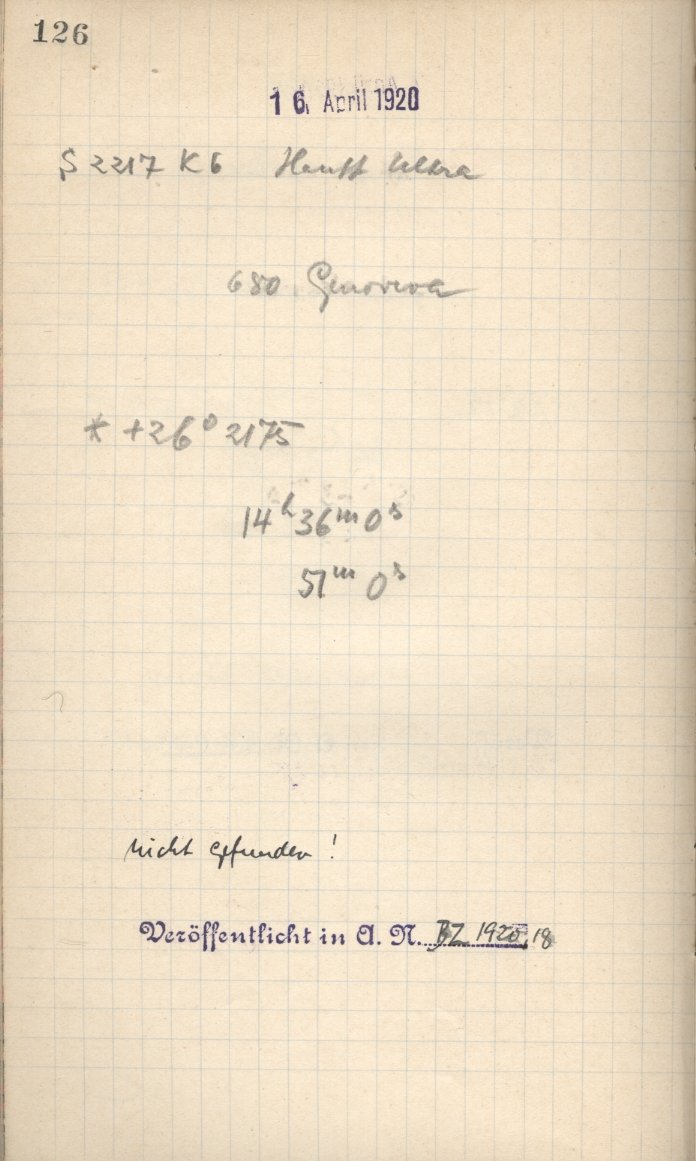 126
16. April 1920
S 2217 K 6 Hauff Ultra
680. Genoveva
* +26° 2175
14ʰ 36ᵐ 0ˢ
51ᵐ 0ˢ
nicht gefunden!
Veröffentlicht in A. N. BZ 1920, 18